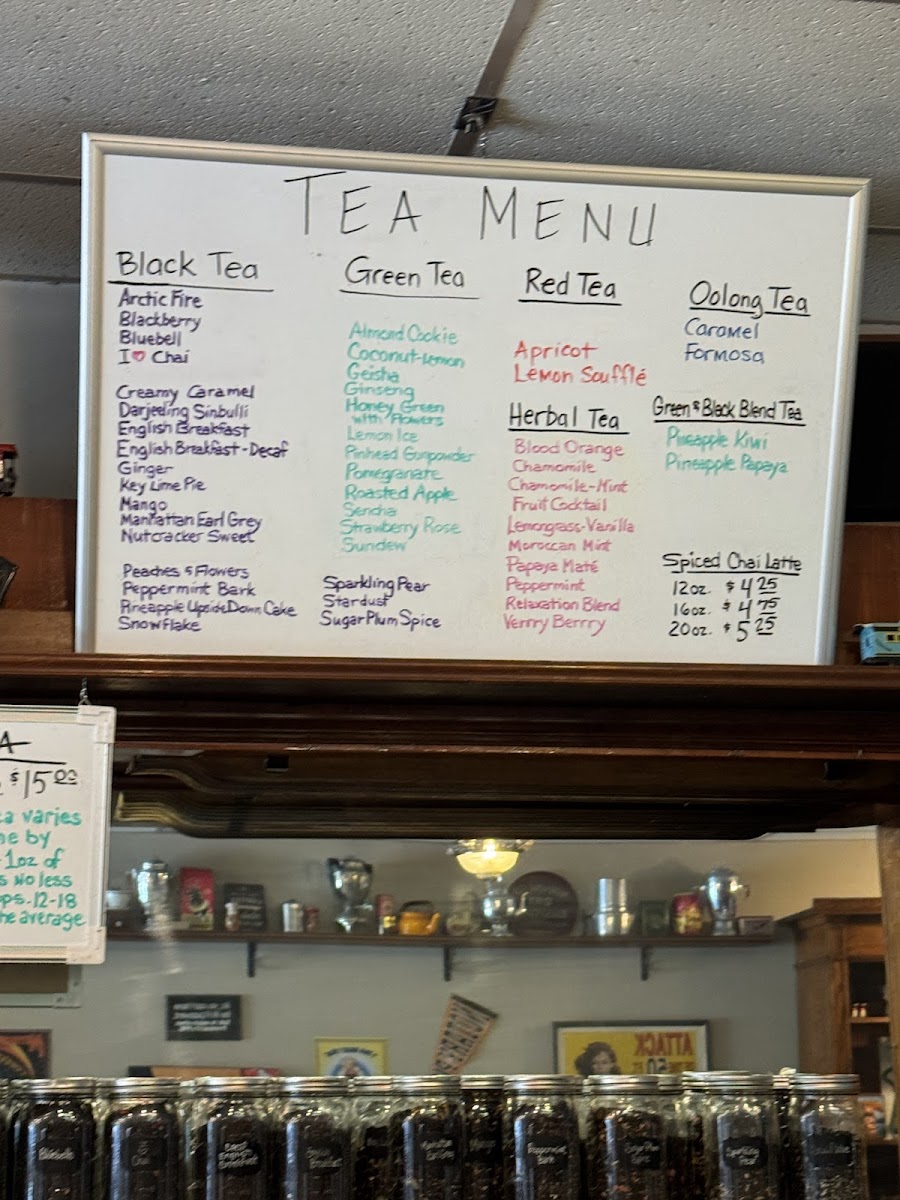 TEA MENU
Black Tea
Arctic Fire
Blackberry
Bluebell
I ♡ Chai
Creamy Caramel
Darjeeling Sinbulli
English Breakfast
English Breakfast-Decaf
Ginger
Key Lime Pie
Mango
Manhattan Earl Grey
Nutcracker Sweet
Peaches & Flowers
Peppermint Bark
Pineapple Upside Down Cake
Snowflake
Green Tea
Almond Cookie
Coconut-Lemon
Geisha
Ginseng
Honey Green
with Flowers
Lemon Ice
Pinhead Gunpowder
Pomegranate
Roasted Apple
Sencha
Strawberry Rose
Sundew
Sparkling Pear
Stardust
Sugar Plum Spice
Red Tea
Apricot
Lemon Soufflé
Herbal Tea
Blood Orange
Chamomile
Chamomile-Mint
Fruit Cocktail
Lemongrass-Vanilla
Moroccan Mint
Papaya Maté
Peppermint
Relaxation Blend
Verrry Berrry
Oolong Tea
Caramel
Formosa
Green & Black Blend Tea
Pineapple Kiwi
Pineapple Papaya
Spiced Chai Latte
12oz. $4 25
16oz. $4 75
20oz. $5 25
A
$15 00
a varies
e by
1oz of
s no less
ps. 12-18
he average
ATTACK
50
Bluebell
Chai
Peppermint
Bark
Sparkling
Pear